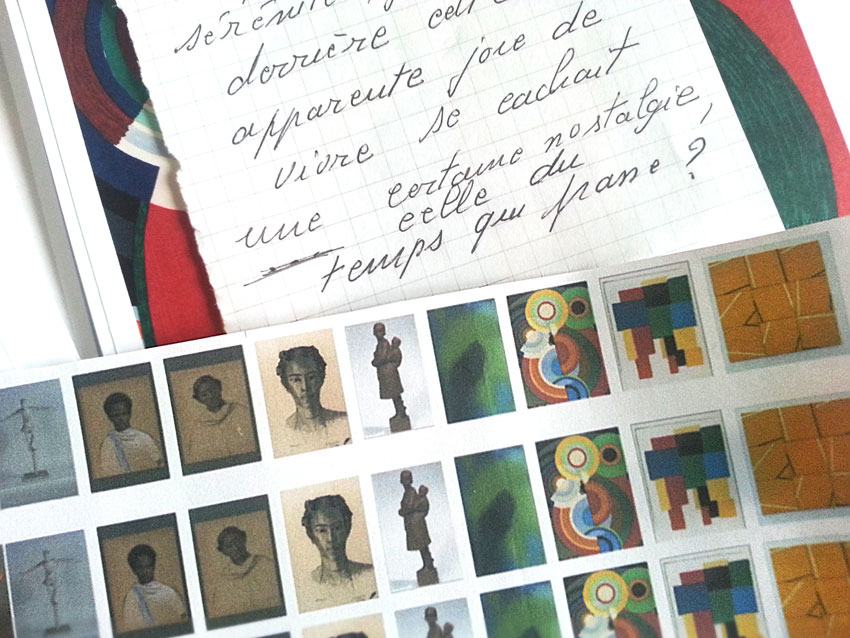 sérénité,
derrière cette
apparente joie de
vivre se cachait
une certaine nostalgie,
celle du
temps qui passe ?